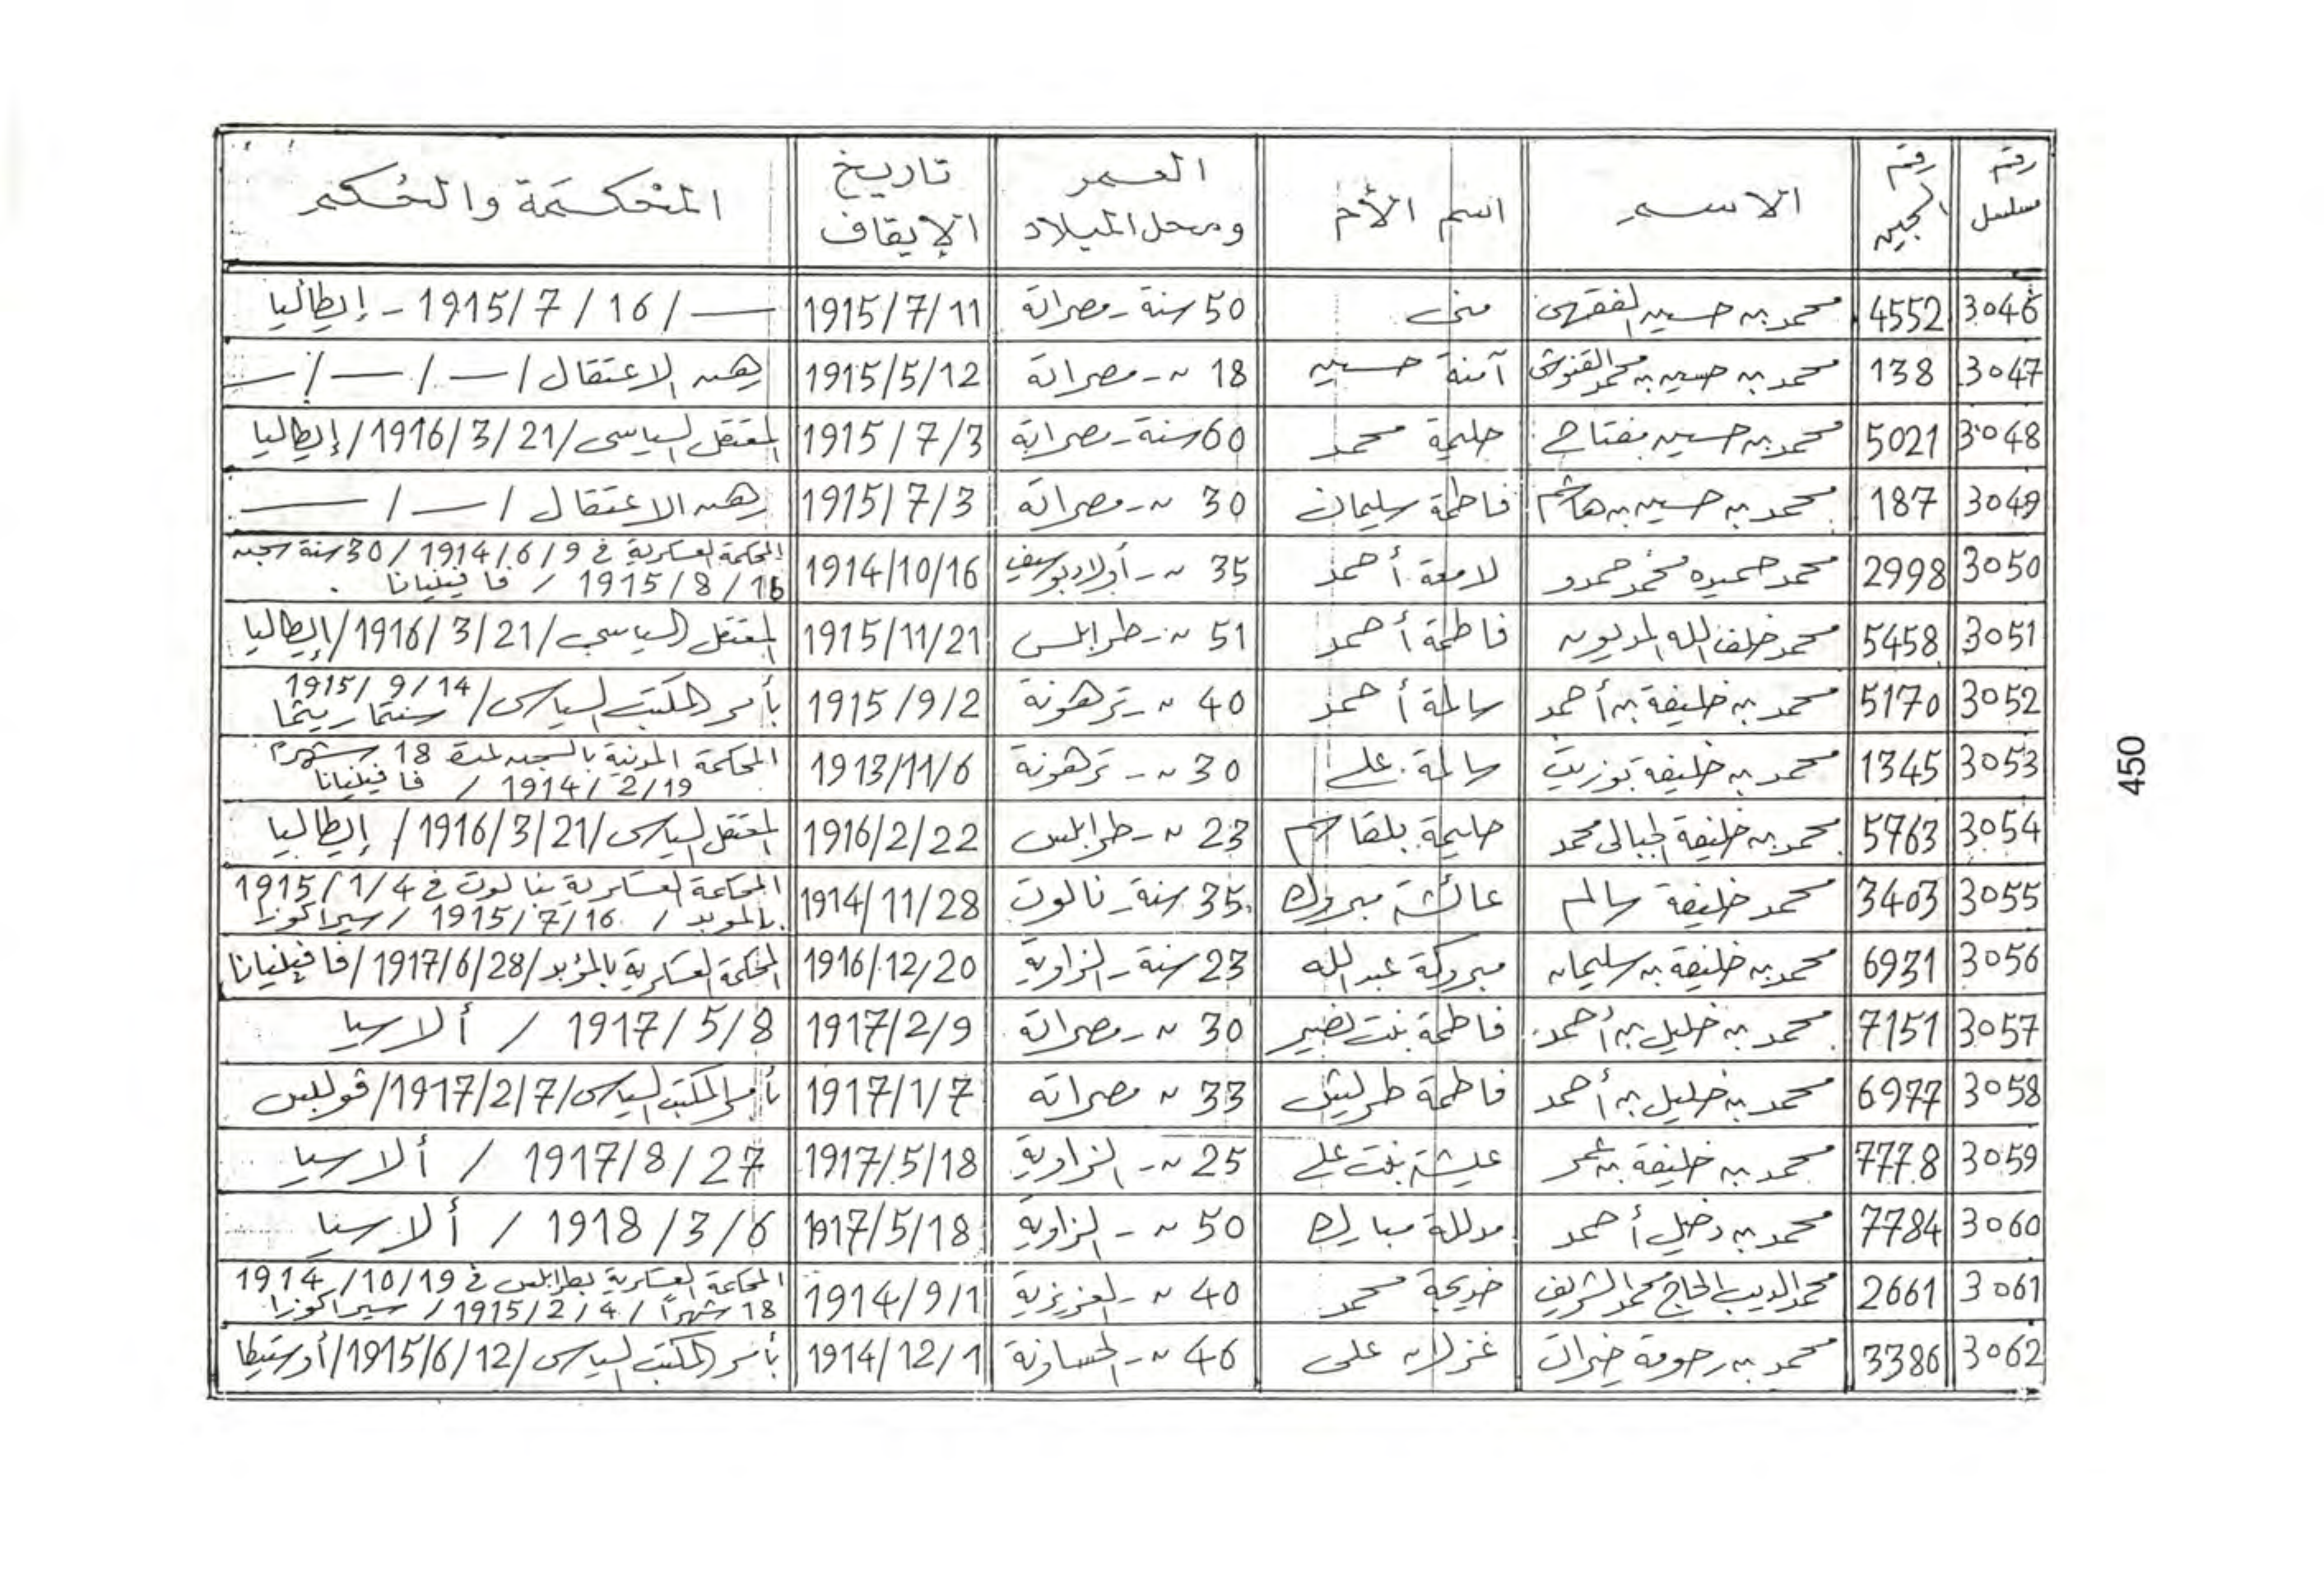 رقم مسلسل | رقم السجين | الاسم | اسم الأم | العمر ومحل الميلاد | تاريخ الإيقاف | المحكمة والحكم
3046 | 4552 | محمد بن حسين الفقهى | منى | 50 سنة - مصراتة | 1915/7/11 | — / 1915/7/16 - إيطاليا
3047 | 138 | محمد بن حسين بن محمد القنوشى | آمنة حسين | 18 " - مصراتة | 1915/5/12 | رهن الاعتقال / — / — / —
3048 | 5021 | محمد بن حسين مفتاح | حليمة محمد | 60 سنة - مصراتة | 1915/7/3 | المعتقل السياسى / 1916/3/21 / إيطاليا
3049 | 187 | محمد بن حسين بن هاشم | فاطمة سليمان | 30 " - مصراتة | 1915/7/3 | رهن الاعتقال / — / —
3050 | 2998 | محمد حميده محمد حمدو | لامعة أحمد | 35 " - أولاد بوسيف | 1914/10/16 | المحكمة العسكرية في 1914/6/9 / 30 سنة سجن
1915/8/16 / فافينيانا
3051 | 5458 | محمد خلف الله المديون | فاطمة أحمد | 51 " - طرابلس | 1915/11/21 | المعتقل السياسي / 1916/3/21 / إيطاليا
3052 | 5170 | محمد بن خليفة بن أحمد | سالمة أحمد | 40 " - ترهونة | 1915/9/2 | بأمر المكتب السياسى / 1915/9/14
3053 | 1345 | محمد بن خليفة بوزيت | سالمة علي | 30 " - ترهونة | 1913/11/6 | المحكمة المدنية بالسجن لمدة 18 شهرا
1914/2/19 / فافينيانا
3054 | 5763 | محمد بن خليفة الجبالى محمد | حليمة بلقاسم | 23 " - طرابلس | 1916/2/22 | المعتقل السياسى / 1916/3/21 / إيطاليا
3055 | 3403 | محمد خليفة سالم | عائشة مبروك | 35 سنة - نالوت | 1914/11/28 | المحكمة العسكرية بنالوت في 1915/1/4
بالموبد / 1915/7/16 / سيراكوزا
3056 | 6931 | محمد بن خليفة بن سليمان | مبروكة عبد الله | 23 سنة - الزاوية | 1916/12/20 | المحكمة العسكرية بالمؤبد / 1917/6/28 / فافينيانا
3057 | 7151 | محمد بن خليل بن أحمد | فاطمة بنت نصير | 30 " - مصراتة | 1917/2/9 | 1917/5/8 / ألاسيا
3058 | 6977 | محمد بن خليل بن أحمد | فاطمة طرليش | 33 " مصراته | 1917/1/7 | بأمر المكتب السياسى / 1917/2/7 / قولبس
3059 | 7778 | محمد بن خليفة بن عمر | عيشة بنت علي | 25 " - الزاوية | 1917/5/18 | 1917/8/27 / ألاسيا
3060 | 7784 | محمد بن دخيل أحمد | مدللة مبارك | 50 " - الزاوية | 1917/5/18 | 1918/3/6 / ألاسيا
3061 | 2661 | محمد الديب الحاج محمد الشريف | خديجة محمد | 40 " - العزيزية | 1914/9/1 | المحكمة العسكرية بطرابلس في 1914/10/19
18 شهراً / 1915/2/4 / سيراكوزا
3062 | 3386 | محمد بن رحومة خيرات | غزلان على | 46 " - الحساونة | 1914/12/1 | بأمر المكتب السياسى / 1915/6/12 / أوستيكا
450